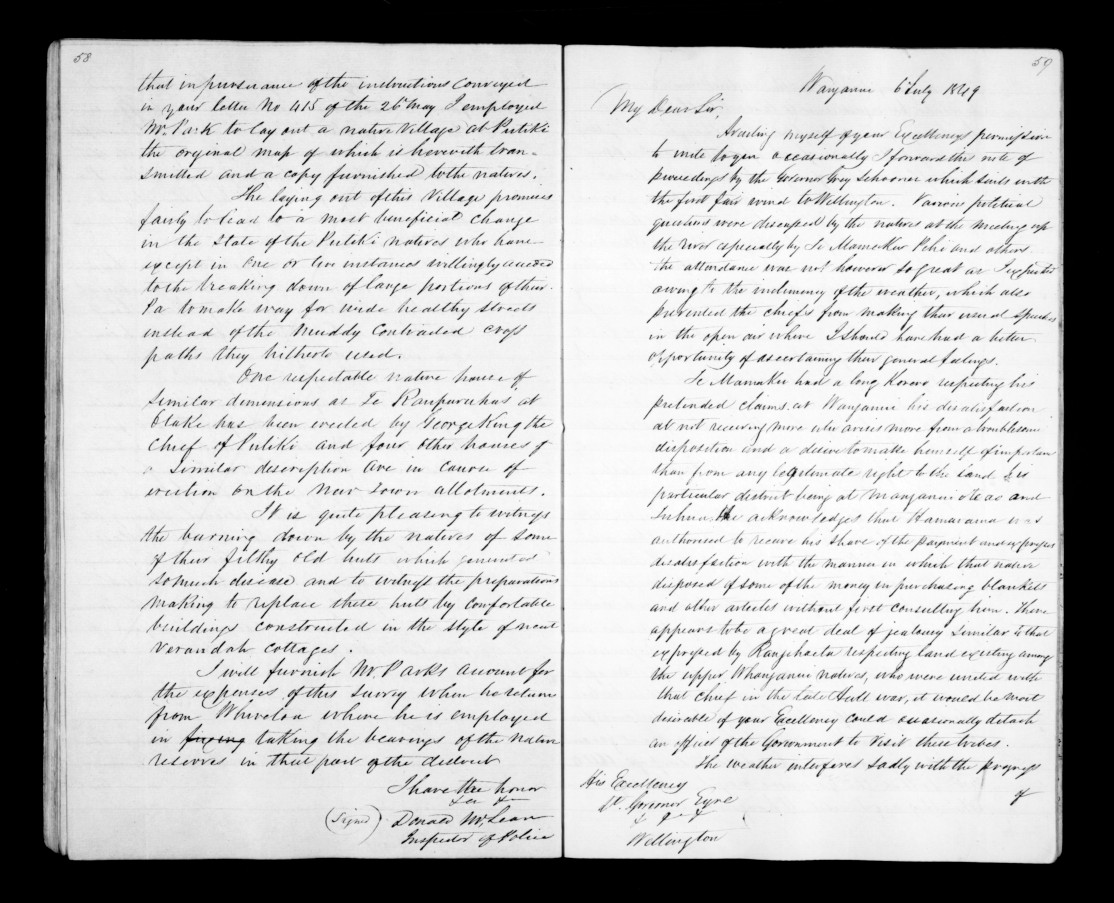 58
that in pursuance of the instructions conveyed
in your letter No 415 of the 26th May I employed
Mr. Park to lay out a native Village at Putiki
the original map of which is herewith tran-
smitted and a copy furnished to the natives.
The laying out of this Village promises
fairly to lead to a most beneficial change
in the State of the Putiki natives who have
except in one or two instances willingly acceeded
to the breaking down of large portions of their
Pa to make way for wide healthy streets
instead of the muddy Contracted cross
paths they hitherto used.
One respectable native house of
similar dimensions as Te Rauparahas at
Otake has been erected by George King the
Chief of Putiki and four other houses of
a similar description are in course of
erection on the New Town allotments.
It is quite pleasing to witness
the burning down by the natives of some
of their filthy old huts which generated
so much disease and to witness the preparations
making to replace these huts by comfortable
buildings constructed in the style of neat
Verandah Cottages.
I will furnish Mr. Parks account for
the expenses of this survey when he returns
from where he is employed
in fixing taking the bearings of the native
reserves in that part of the district
I have the honor
&c &c
(Signed) Donald McLean
Inspector of Police
59
Wanganui 6 July 1849
My Dear Sir,
Availing myself of your Excellencys permission
to write to you occasionally I forward this note of
proceedings by the Governor Grey Schooner which sails with
the first fair wind to Wellington. Various political
questions were discussed by the natives at the meeting up
the river especially by Te Mamaku Pehi and others.
the attendance was not however so great as I expected
owing to the inclemency of the weather, which also
prevented the chiefs from making their usual speeches
in the open air where I should have had a better
opportunity of ascertaining their general feelings.
Te Mamaku had a long Korero respecting his
pretended claims at Wanganui his disatisfaction
at not receiving more who arises more from a troublesome
disposition and a desire to make himself of importan
than from any legitimate right to the land
particular district being at Manganui o te ao and
Tuhua. He acknowledges that Hamarama was
authorised to receive his share of the payment and expresses
disatisfaction with the manner in which that native
disposed of some of the money in purchasing blankets
and other articles without first consulting him. There
appears to be a great deal of jealousy similar to that
expressed by Rangihaeta respecting land existing among
the upper Whanganui natives, who were united with
that chief in the late Hutt war, it would be most
desirable if your Excellency could occasionally detach
an officer of the Government to visit these tribes.
The weather interferes sadly with the progress
of
His Excellency
Lt. Governor Eyre
&c &c &c
Wellington